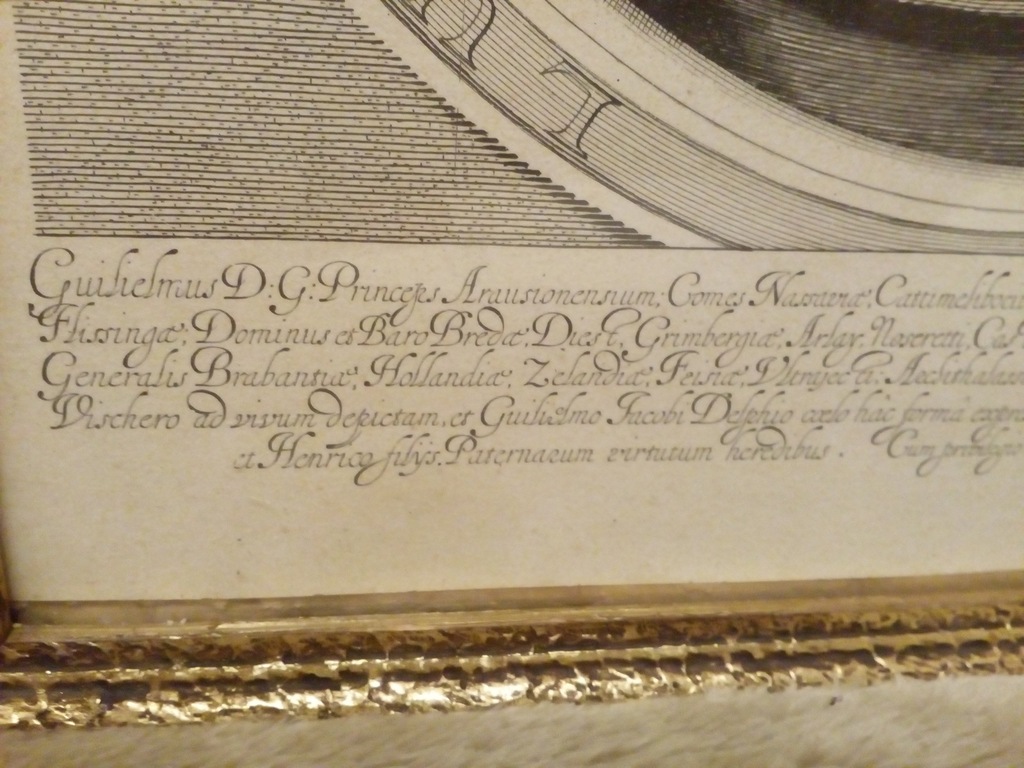 L
Guilielmus D: G: Princeps Arausionensium, Comes Nassaviæ, Cattimeliboci
Flissingæ, Dominus et Baro Bredæ, Diest, Grimbergiæ, Arlay, Noseretti, Cast
Generalis Brabantiæ, Hollandiæ, Zelandiæ, Frisiæ, Vltrajecti,
Vischero ad vivum depictam, et Guilielmo Jacobi Delphio cœlo hac forma
et Henrico filijs, Paternarum virtutum heredibus. Cum